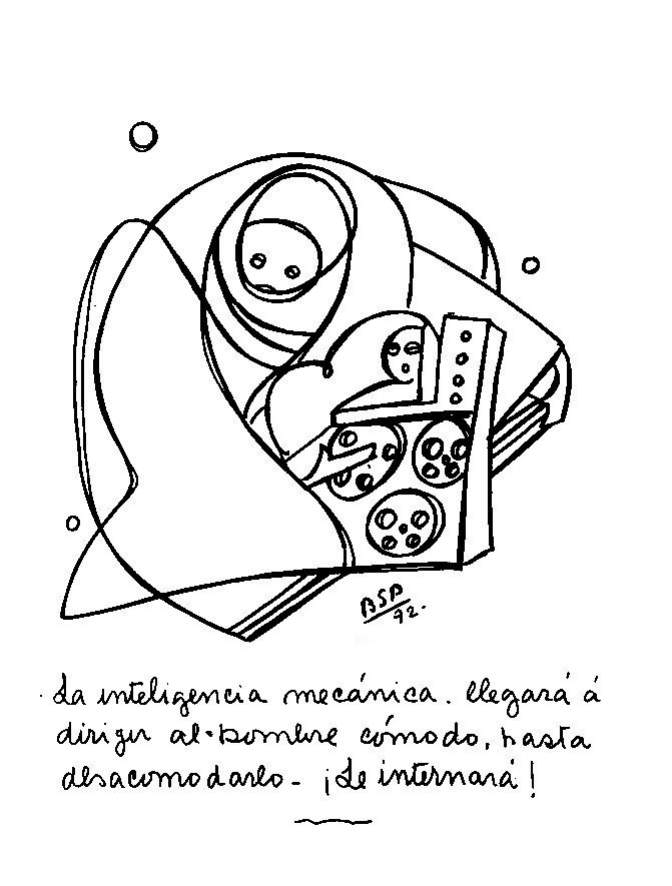 BSP
92.
La inteligencia mecánica. llegará á
dirigir al hombre cómodo, hasta
desacomodarlo - ¡Le internará!